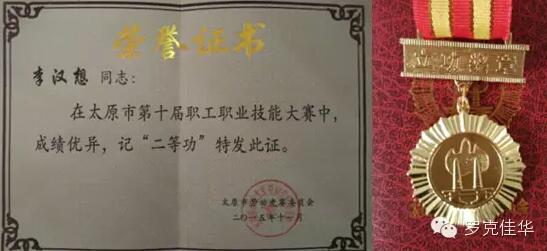 荣誉证书
李汉想 同志：
在太原市第十届职工职业技能大赛中，
成绩优异，记“二等功”特发此证。
太原市劳动竞赛委员会
二〇一五年十一月
立功奖章
罗克佳华